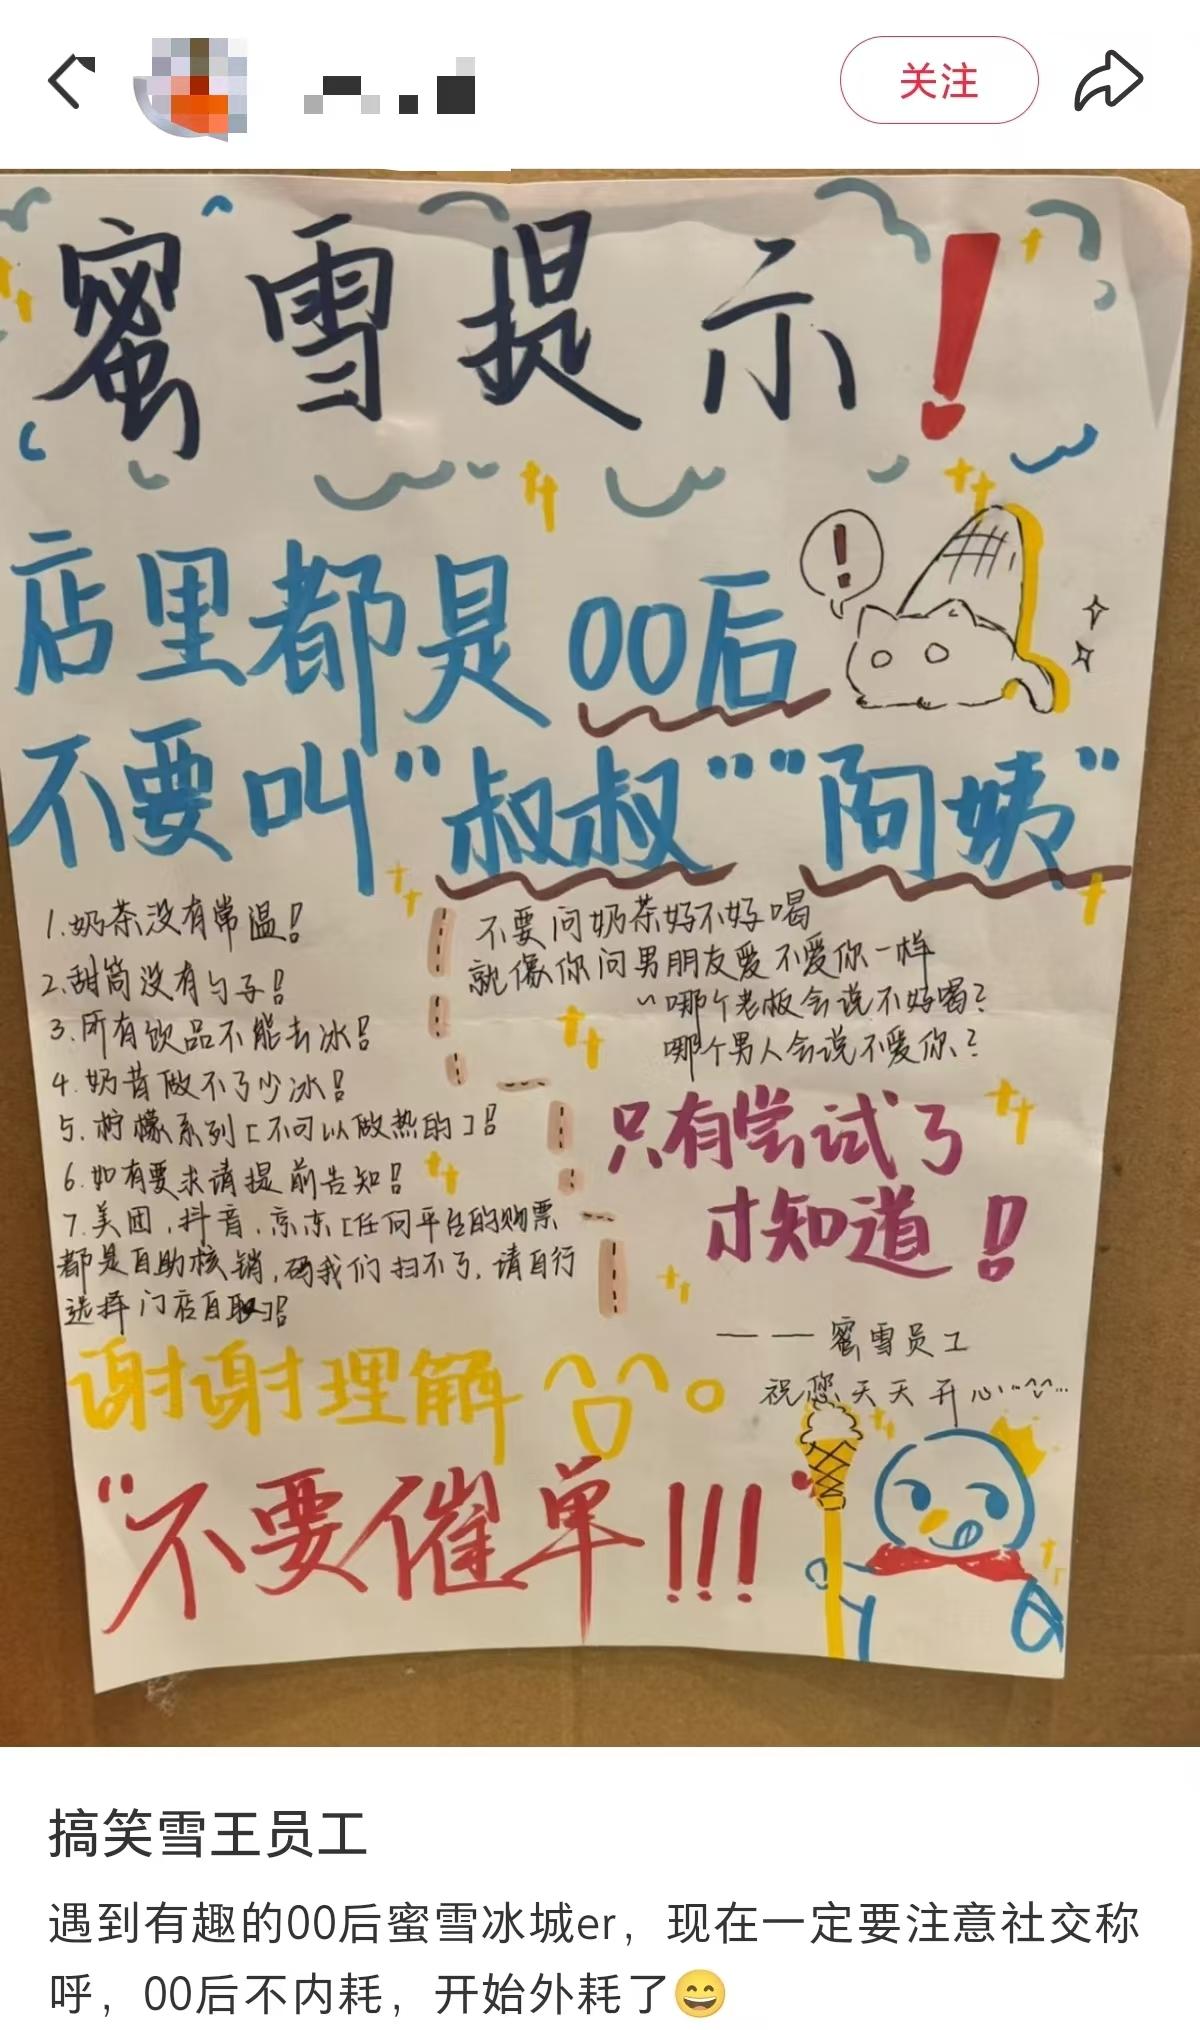 关注
蜜雪提示!
店里都是00后
!
不要叫“叔叔”“阿姨”
1.奶茶没有常温!
2.甜筒没有勺子!
3.所有饮品不能去冰!
4.奶昔做不了少冰!
5.柠檬系列[不可以做热的]!
6.如有要求请提前告知!
7.美团.抖音.京东[任何平台的购票
都是自助核销,码我们扫不了,请自行
选择门店自取]!
不要问奶茶好不好喝
就像你问男朋友爱不爱你一样
哪个老板会说不好喝?
哪个男人会说不爱你?
只有尝试了
才知道!
——蜜雪员工
祝您天天开心
谢谢理解
“不要催单!!!”
搞笑雪王员工
遇到有趣的00后蜜雪冰城er，现在一定要注意社交称
呼，00后不内耗，开始外耗了😄